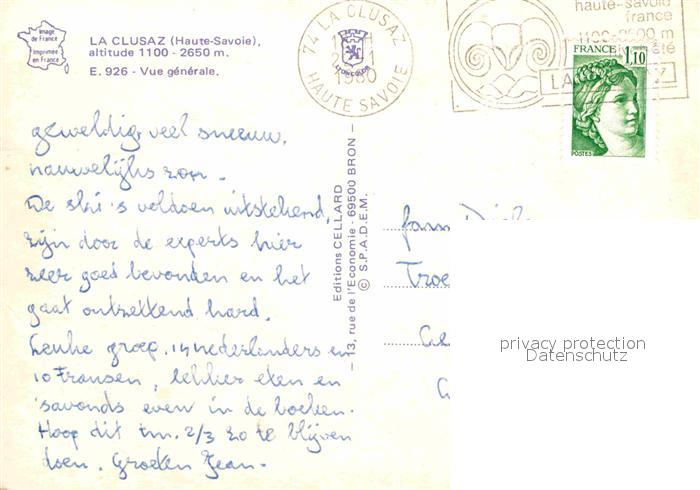 image
de France
Imprimée
en France
LA CLUSAZ (Haute-Savoie),
altitude 1100 - 2650 m.
E. 926 - Vue générale.
74 LA CLUSAZ
1980
HAUTE SAVOIE
haute-savoie
france
1100-2600 m
été
LA
FRANCE 1,10
POSTES
geweldig veel sneeuw,
nauwelijks zon.
De ski's voldoen uitstekend,
zijn door de experts hier
zeer goed bevonden en het
gaat ontzettend hard.
Leuke groep. 14 nederlanders en
10 Fransen, lekker eten en
'savonds even in de boeken.
Hoop dit tm. 2/3 zo te blijven
doen. Groeten Jean.
Editions CELLARD
13, rue de l'Economie - 69500 BRON -
© S.P.A.D.E.M.
fam
Troe
privacy protection
Datenschutz